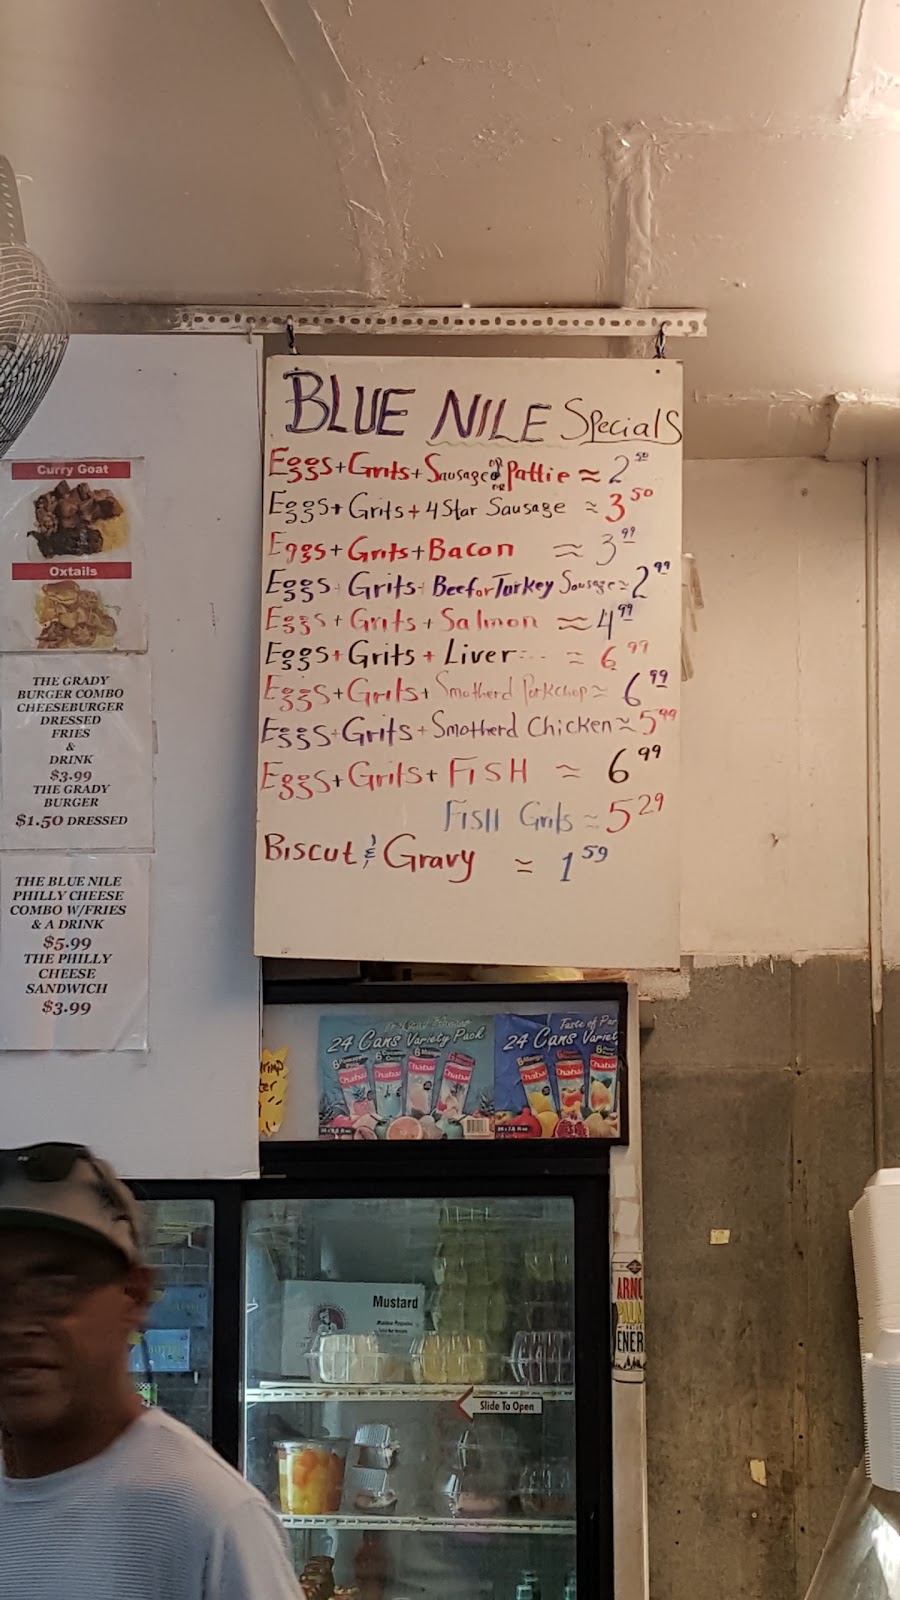 BLUE NILE Specials
Eggs+Grits+Sausage or Pattie ≈ 2 50
Eggs+Grits+4 Star Sausage ≈ 3 50
Eggs+Grits+Bacon ≈ 3 99
Eggs+Grits+Beef or Turkey Sausage ≈ 2 99
Eggs+Grits+Salmon ≈ 4 99
Eggs+Grits+Liver... ≈ 6 99
Eggs+Grits+Smotherd Porkchop ≈ 6 99
Eggs+Grits+Smotherd Chicken ≈ 5 99
Eggs+Grits+FISH ≈ 6 99
FISH Grits ≈ 5 29
Biscut & Gravy ≈ 1 59
Curry Goat
Oxtails
THE GRADY
BURGER COMBO
CHEESEBURGER
DRESSED
FRIES
&
DRINK
$3.99
THE GRADY
BURGER
$1.50 DRESSED
THE BLUE NILE
PHILLY CHEESE
COMBO W/FRIES
& A DRINK
$5.99
THE PHILLY
CHEESE
SANDWICH
$3.99
24 Cans Variety Pack
Chaba
Taste of Par
24 Cans Variet
Chaba
Mustard
Slide To Open
ARNO
PALM
ENER